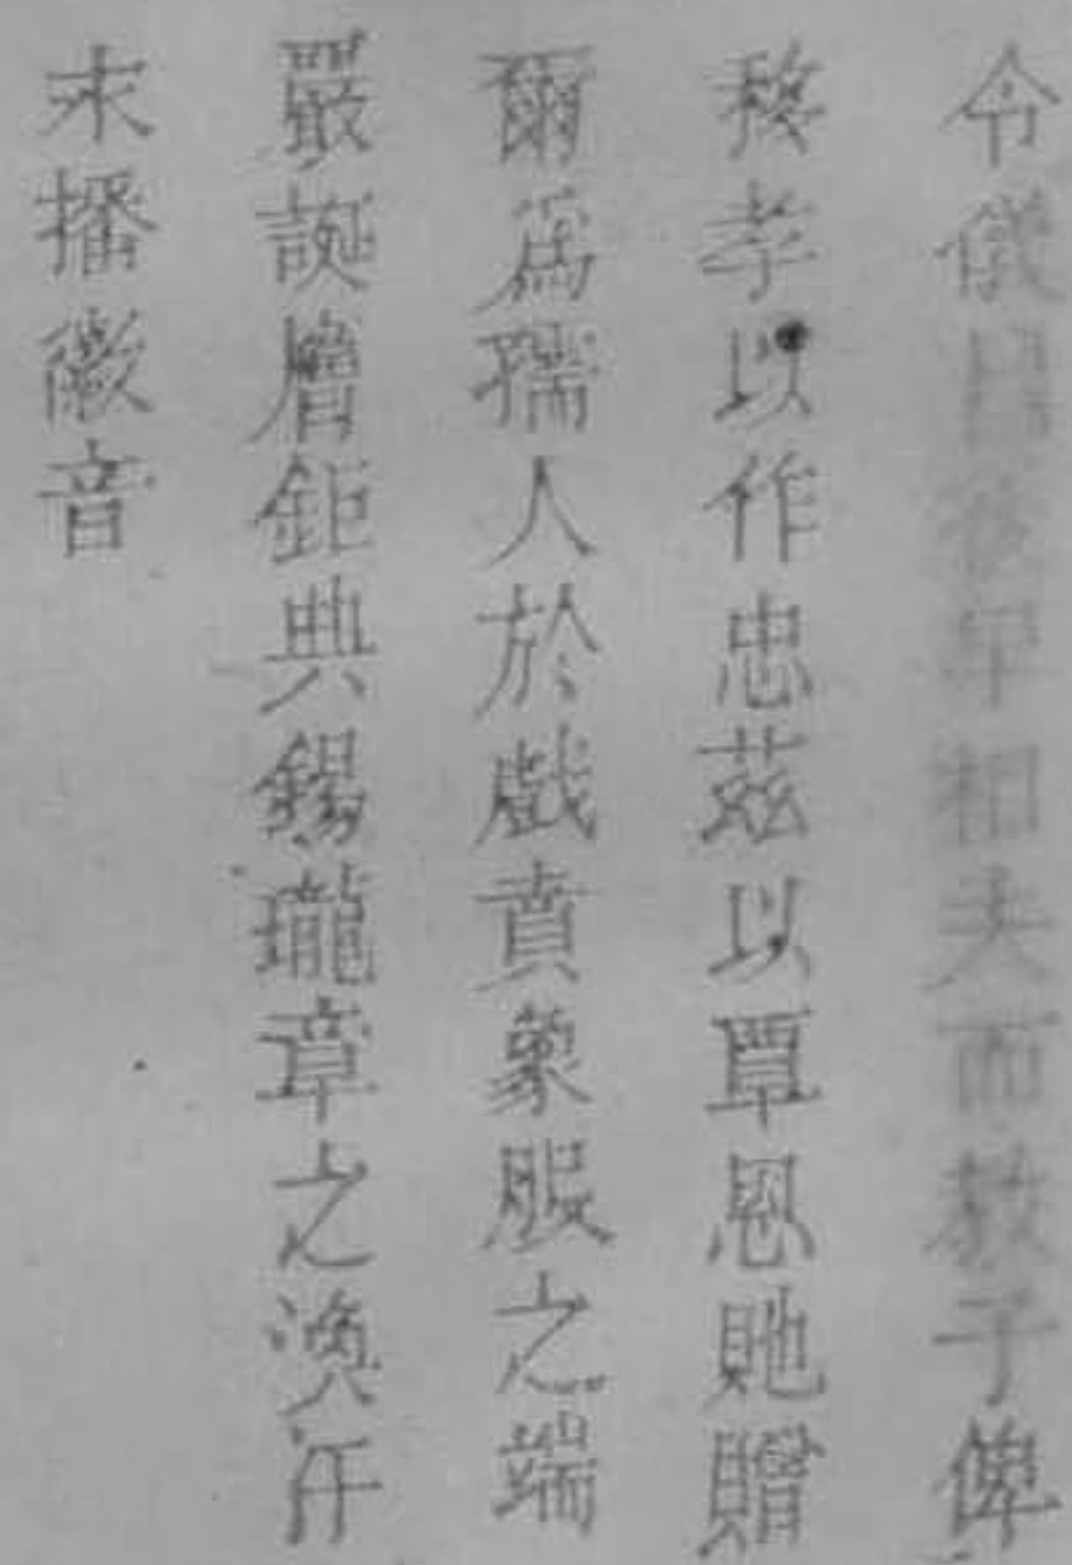 令儀後早相夫而教子俾
移孝以作忠茲以覃恩貤贈
爾爲孺人於戲賁象服之端
嚴誕膺鉅典錫瓏章之渙汗
永播徽音